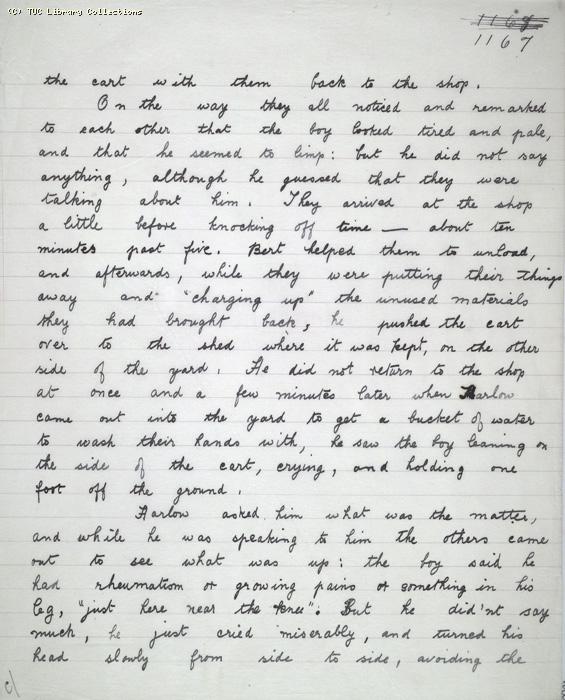 (C) TUC Library Collections
1168
1167
the cart with them back to the shop.
On the way they all noticed and remarked
to each other that the boy looked tired and pale,
and that he seemed to limp: but he did not say
anything, although he guessed that they were
talking about him. They arrived at the shop
a little before knocking off time — about ten
minutes past five. Bert helped them to unload,
and afterwards, while they were putting their things
away and "charging up" the unused materials
they had brought back, he pushed the cart
over to the shed where it was kept, on the other
side of the yard. He did not return to the shop
at once and a few minutes later when Harlow
came out into the yard to get a bucket of water
to wash their hands with, he saw the boy leaning on
the side of the cart, crying, and holding one
foot off the ground.
Harlow asked him what was the matter,
and while he was speaking to him the others came
out to see what was up: the boy said he
had rheumatism or growing pains or something in his
leg, "just here near the knee": But he did'nt say
much, he just cried miserably, and turned his
head slowly from side to side, avoiding the